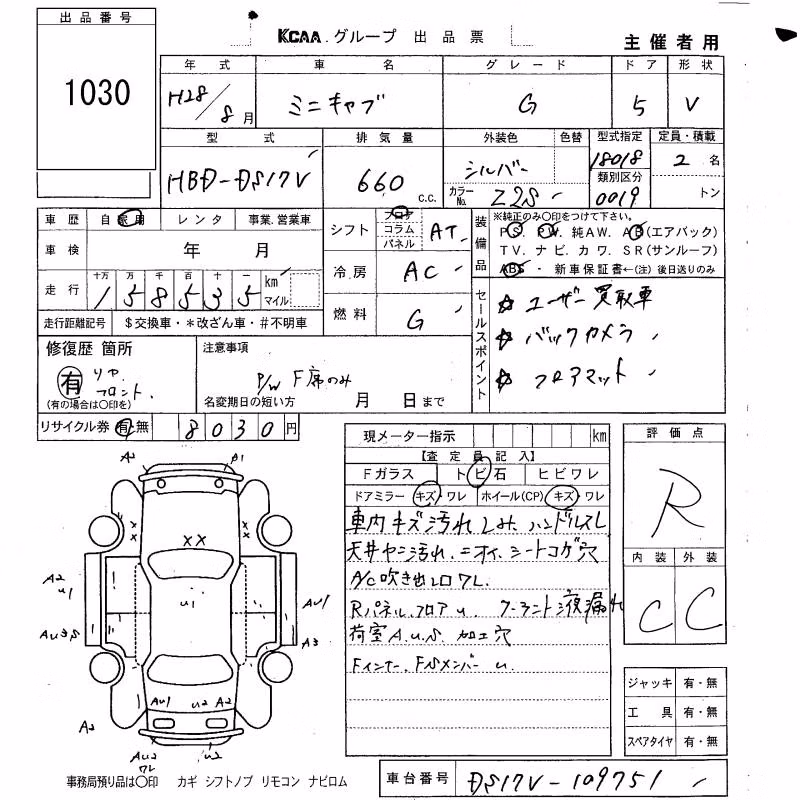 出品番号
1030
KCAA.グループ 出品票
主催者用
年式 車名 グレード ドア 形状
H28/8月 ミニキャブ G 5 V
型式 排気量 外装色 色替 型式指定 定員・積載
HBD-DS17V 660 c.c. シルバー 18018 2名
カラーNo. Z2S 類別区分 0019 トン
車歴 自家用 レンタ 事業.営業車
車検 年 月
走行 十万 万 千 百 十 一 km マイル
158535
走行距離記号 $交換車・*改ざん車・#不明車
シフト フロア コラム パネル AT
冷房 AC
燃料 G
装備品
※純正のみ〇印をつけて下さい。
PS. PW. 純AW. AB(エアバック)
TV. ナビ. カワ. SR(サンルーフ)
ABS・ 新車保証書←(注) 後日送りのみ
セールスポイント
☆ ユーザー買取車
☆ バックカメラ
☆ フロアマット
修復歴 箇所
有 リヤ.フロント.
(有の場合は〇印を)
注意事項
P/W F席のみ
名変期日の短い方 月 日まで
リサイクル券 有・無 8030円
現メーター指示 km
【査定員記入】
Fガラス トビ石 ヒビワレ
ドアミラー キズ・ワレ ホイール(CP) キズ・ワレ
車内キズ汚れシミ.ハンドルスレ
天井ヤニ汚れ.ニオイ.シートコゲ穴
A/C吹き出し口ワレ.
Rパネル.フロアu. クーラント液漏れ
荷室A.u.S.加工穴
Fインナー.FSメンバーu.
評価点
R
内装 外装
C C
ジャッキ 有・無
工具 有・無
スペアタイヤ 有・無
A2 P1
××
××
××
A2
u1
u1
AU1
AU3S
A3
AU1 u2 A2
A2
AU2
ワレ
u2
事務局預り品は〇印 カギ シフトノブ リモコン ナビロム
車台番号 DS17V-109751